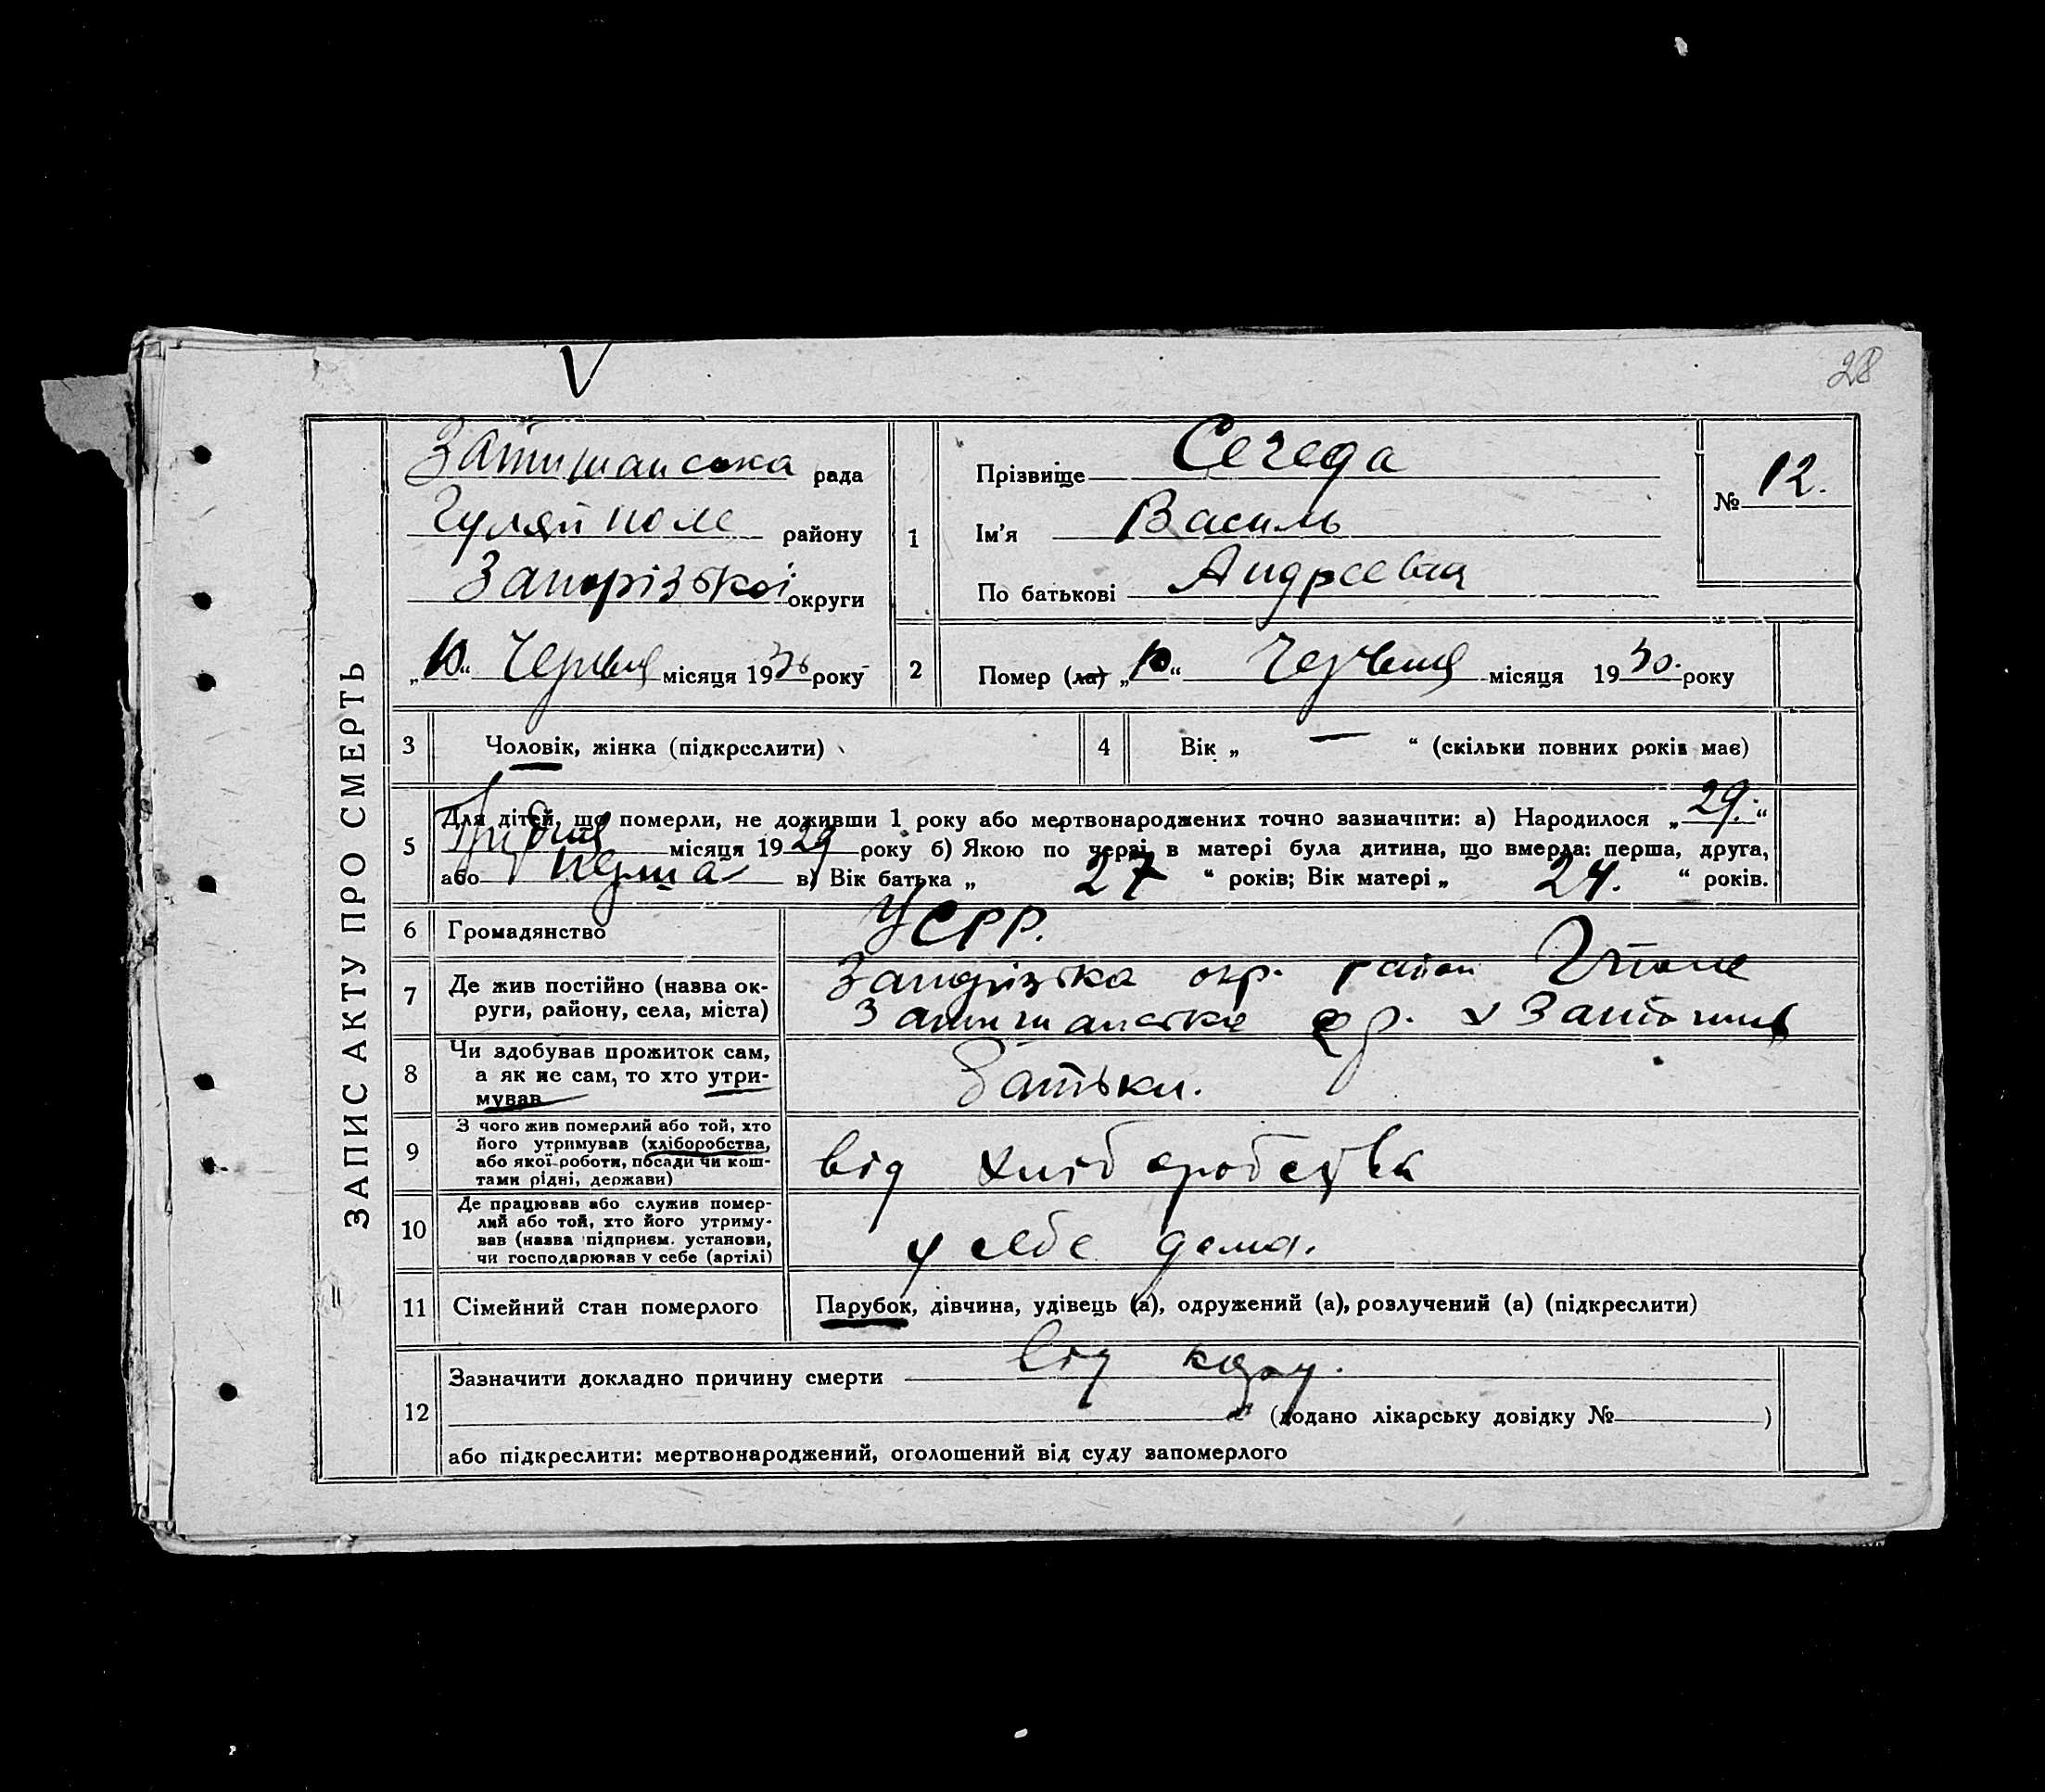 V
28
ЗАПИС АКТУ ПРО СМЕРТЬ
Затишанська рада
Гуляйполе району
Запорізької округи
„10“ Червня місяця 1930 року
1
Прізвище Сегеда
Ім'я Василь
По батькові Андреевич
№ 12.
2
Помер (ла) „10“ Червня місяця 1930. року
3
Чоловік, жінка (підкреслити)
4
Вік „ — “ (скільки повних років має)
5
Для дітей, що померли, не доживши 1 року або мертвонароджених точно зазначити: а) Народилося „29.“
Грудня місяця 1929 року б) Якою по черзі в матері була дитина, що вмерла: перша, друга,
або перша в) Вік батька „27“ років; Вік матері „24.“ років.
6
Громадянство
УСРР.
7
Де жив постійно (назва ок-
руги, району, села, міста)
Запорізька окр. район
Затишанська х
8
Чи здобував прожиток сам,
а як не сам, то хто утри-
мував
Батьки.
9
З чого жив померлий або той, хто
його утримував (хліборобства,
або якої роботи, посади чи кош-
тами рідні, держави)
від хліборобства
10
Де працював або служив помер-
лий або той, хто його утриму-
вав (назва підприєм. установи,
чи господарював у себе (артілі)
у себе дома.
11
Сімейний стан померлого
Парубок, дівчина, удівець (а), одружений (а), розлучений (а) (підкреслити)
12
Зазначити докладно причину смерти від
(додано лікарську довідку № )
або підкреслити: мертвонароджений, оголошений від суду запомерлого